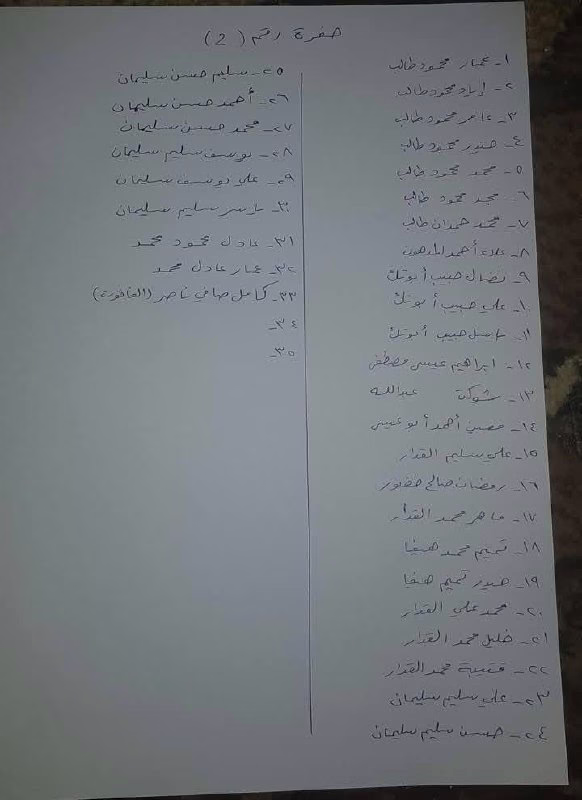 حفرة رقم (2)
١- عمار محمود طالب
٢- إياد محمود طالب
٣- عامر محمود طالب
٤- حيدر محمود طالب
٥- محمد محمود طالب
٦- مجد محمود طالب
٧- محمد حمدان طالب
٨- علاء أحمد
٩- نضال حبيب أبوتك
١٠- علي حبيب أبوتك
١١- باسل حبيب أبوتك
١٢- ابراهيم عيسى مصطفى
١٣- شوكت عبدالله
١٤- أحمد أبو عيسى
١٥- علي سليم القدار
١٦- رمضان صالح
١٧- ماهر محمد القدار
١٨- تميم محمد هيفا
١٩- حيدر تميم هيفا
٢٠- محمد علي القدار
٢١- خليل محمد القدار
٢٢- قتيبة محمد القدار
٢٣- علي سليم سليمان
٢٤- حسن سليم سليمان
٢٥- سليم حسن سليمان
٢٦- أحمد حسن سليمان
٢٧- محمد حسن سليمان
٢٨- يوسف سليم سليمان
٢٩- علي يوسف سليمان
٣٠- ياسر سليم سليمان
٣١- عادل محمود محمد
٣٢- عمار عادل محمد
٣٣- كامل صافي ناصر
٣٤-
٣٥-